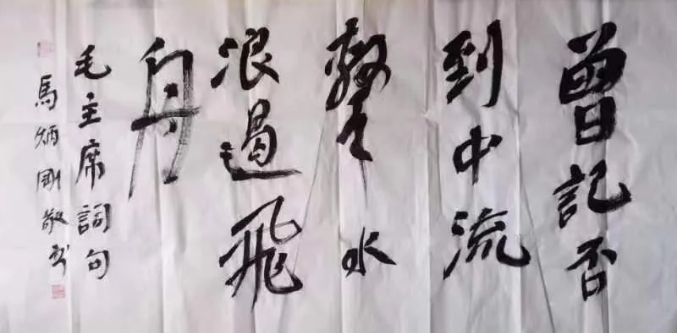 曾記否
到中流
擊水
浪遏飛
舟
毛主席詞句
馬炳剛敬书